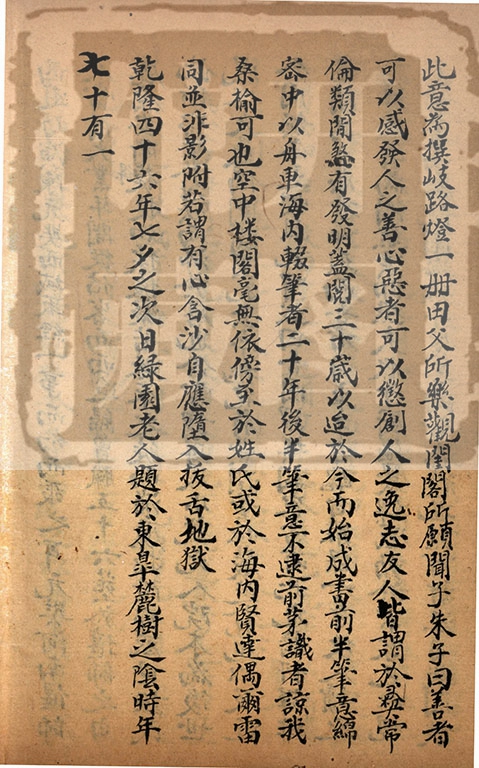 此意為撰歧路燈一冊田父所樂觀閨閣所願聞子朱子曰善者
可以感發人之善心惡者可以懲創人之逸志友人皆謂於彝常
倫類間煞有發明蓋閱三十歲以迨於今而始成書前半筆意綿
密中以舟車海內輟筆者二十年後半筆意不逮前茅識者諒我
桑榆可也空中樓閣毫無依傍至於姓氏或於海內賢達偶爾雷
同並非影附若謂有心含沙自應墮入拔舌地獄
乾隆四十六年七夕之次日綠園老人題於東臯麓樹之陰時年
七十有一